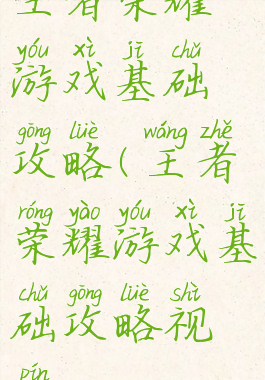 王者荣耀
yóu xì jī chǔ
游戏基础
gōng lüè wáng zhě
攻略(王者
róng yào yóu xì jī
荣耀游戏基
chǔ gōng lüè shì
础攻略视
pín